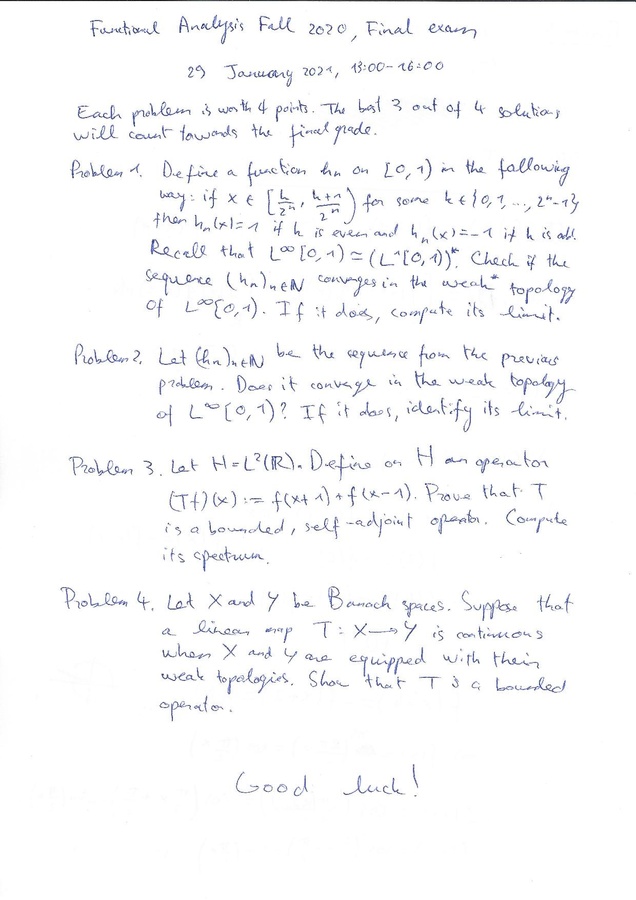 Functional Analysis Fall 2020, Final exam
29 January 2021, 13:00-16:00
Each problem is worth 4 points. The best 3 out of 4 solutions
will count towards the final grade.
Problem 1. Define a function hn on [0,1) in the following
way: if x ∈ [k/2^n, (k+1)/2^n) for some k ∈ {0,1,...,2^n-1}
then h_n(x)=1 if k is even and h_n(x)=-1 if k is odd.
Recall that L^∞[0,1) ≃ (L^1[0,1))*. Check if the
sequence (h_n)_{n∈ℕ} converges in the weak* topology
of L^∞[0,1). If it does, compute its limit.
Problem 2. Let (h_n)_{n∈ℕ} be the sequence from the previous
problem. Does it converge in the weak topology
of L^∞[0,1)? If it does, identify its limit.
Problem 3. Let H=L^2(ℝ). Define on H an operator
(Tf)(x) := f(x+1)+f(x-1). Prove that T
is a bounded, self-adjoint operator. Compute
its spectrum.
Problem 4. Let X and Y be Banach spaces. Suppose that
a linear map T: X → Y is continuous
when X and Y are equipped with their
weak topologies. Show that T is a bounded
operator.
Good luck!